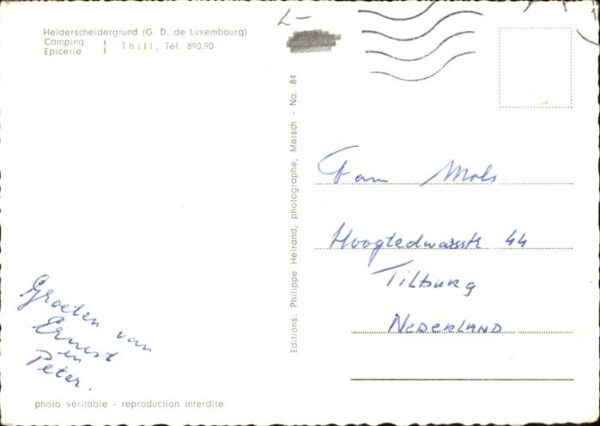 Heiderscheidergrund (G. D. de Luxembourg)
Camping
Epicerie } Thill, Tél. 890.90
L-
Editions: Philippe Heirand, photographe, Mersch - No. 84
Fam Mols
44
Tilburg
NEDERLAND
Groeten van
Ernest
en
Peter.
photo véritable - reproduction interdite